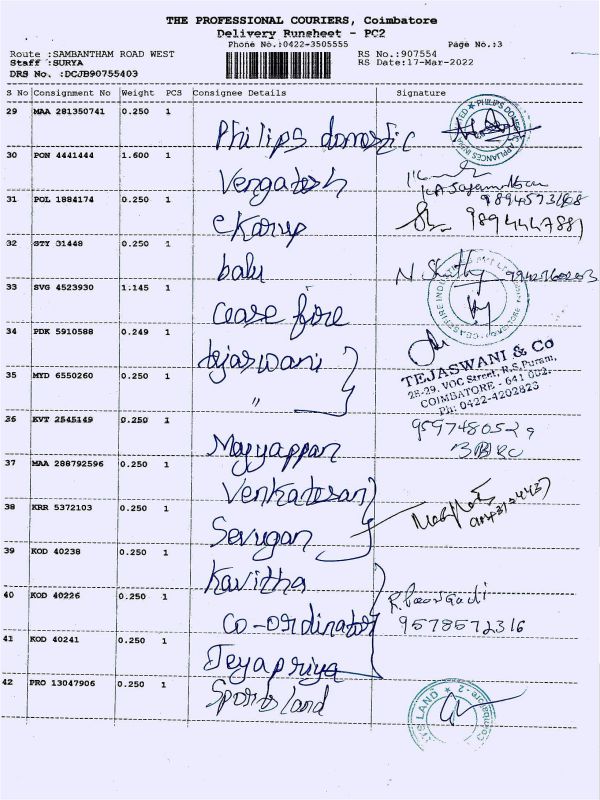 THE PROFESSIONAL COURIERS, Coimbatore
Delivery Runsheet - PC2
Phone No.:0422-3505555 Page No.:3
Route :SAMBANTHAM ROAD WEST RS No.:907554
Staff :SURYA RS Date:17-Mar-2022
DRS No. :DCJB90755403
S No Consignment No Weight PCS Consignee Details Signature
29 MAA 281350741 0.250 1 Philips domestic
30 PON 4441444 1.600 1 Vengatesh
31 POL 1884174 0.250 1 ekarup 9894447881
32 STY 31448 0.250 1 balu
33 SVG 4523930 1.145 1 cease fire
34 PDK 5910588 0.249 1 tejaswani
TEJASWANI & Co
28-29, VOC Street, R.S.Puram,
COIMBATORE - 641 002.
Ph: 0422-4202823
35 MYD 6550260 0.250 1 "
36 KVT 2545149 0.250 1 Mayyappan
37 MAA 288792596 0.250 1 Venkatesan
38 KRR 5372103 0.250 1 Sevugan
39 KOD 40238 0.250 1 Kavitha
40 KOD 40226 0.250 1 co-ordinator 9578572316
41 KOD 40241 0.250 1 Jeyapriya
42 PRO 13047906 0.250 1 Sports land